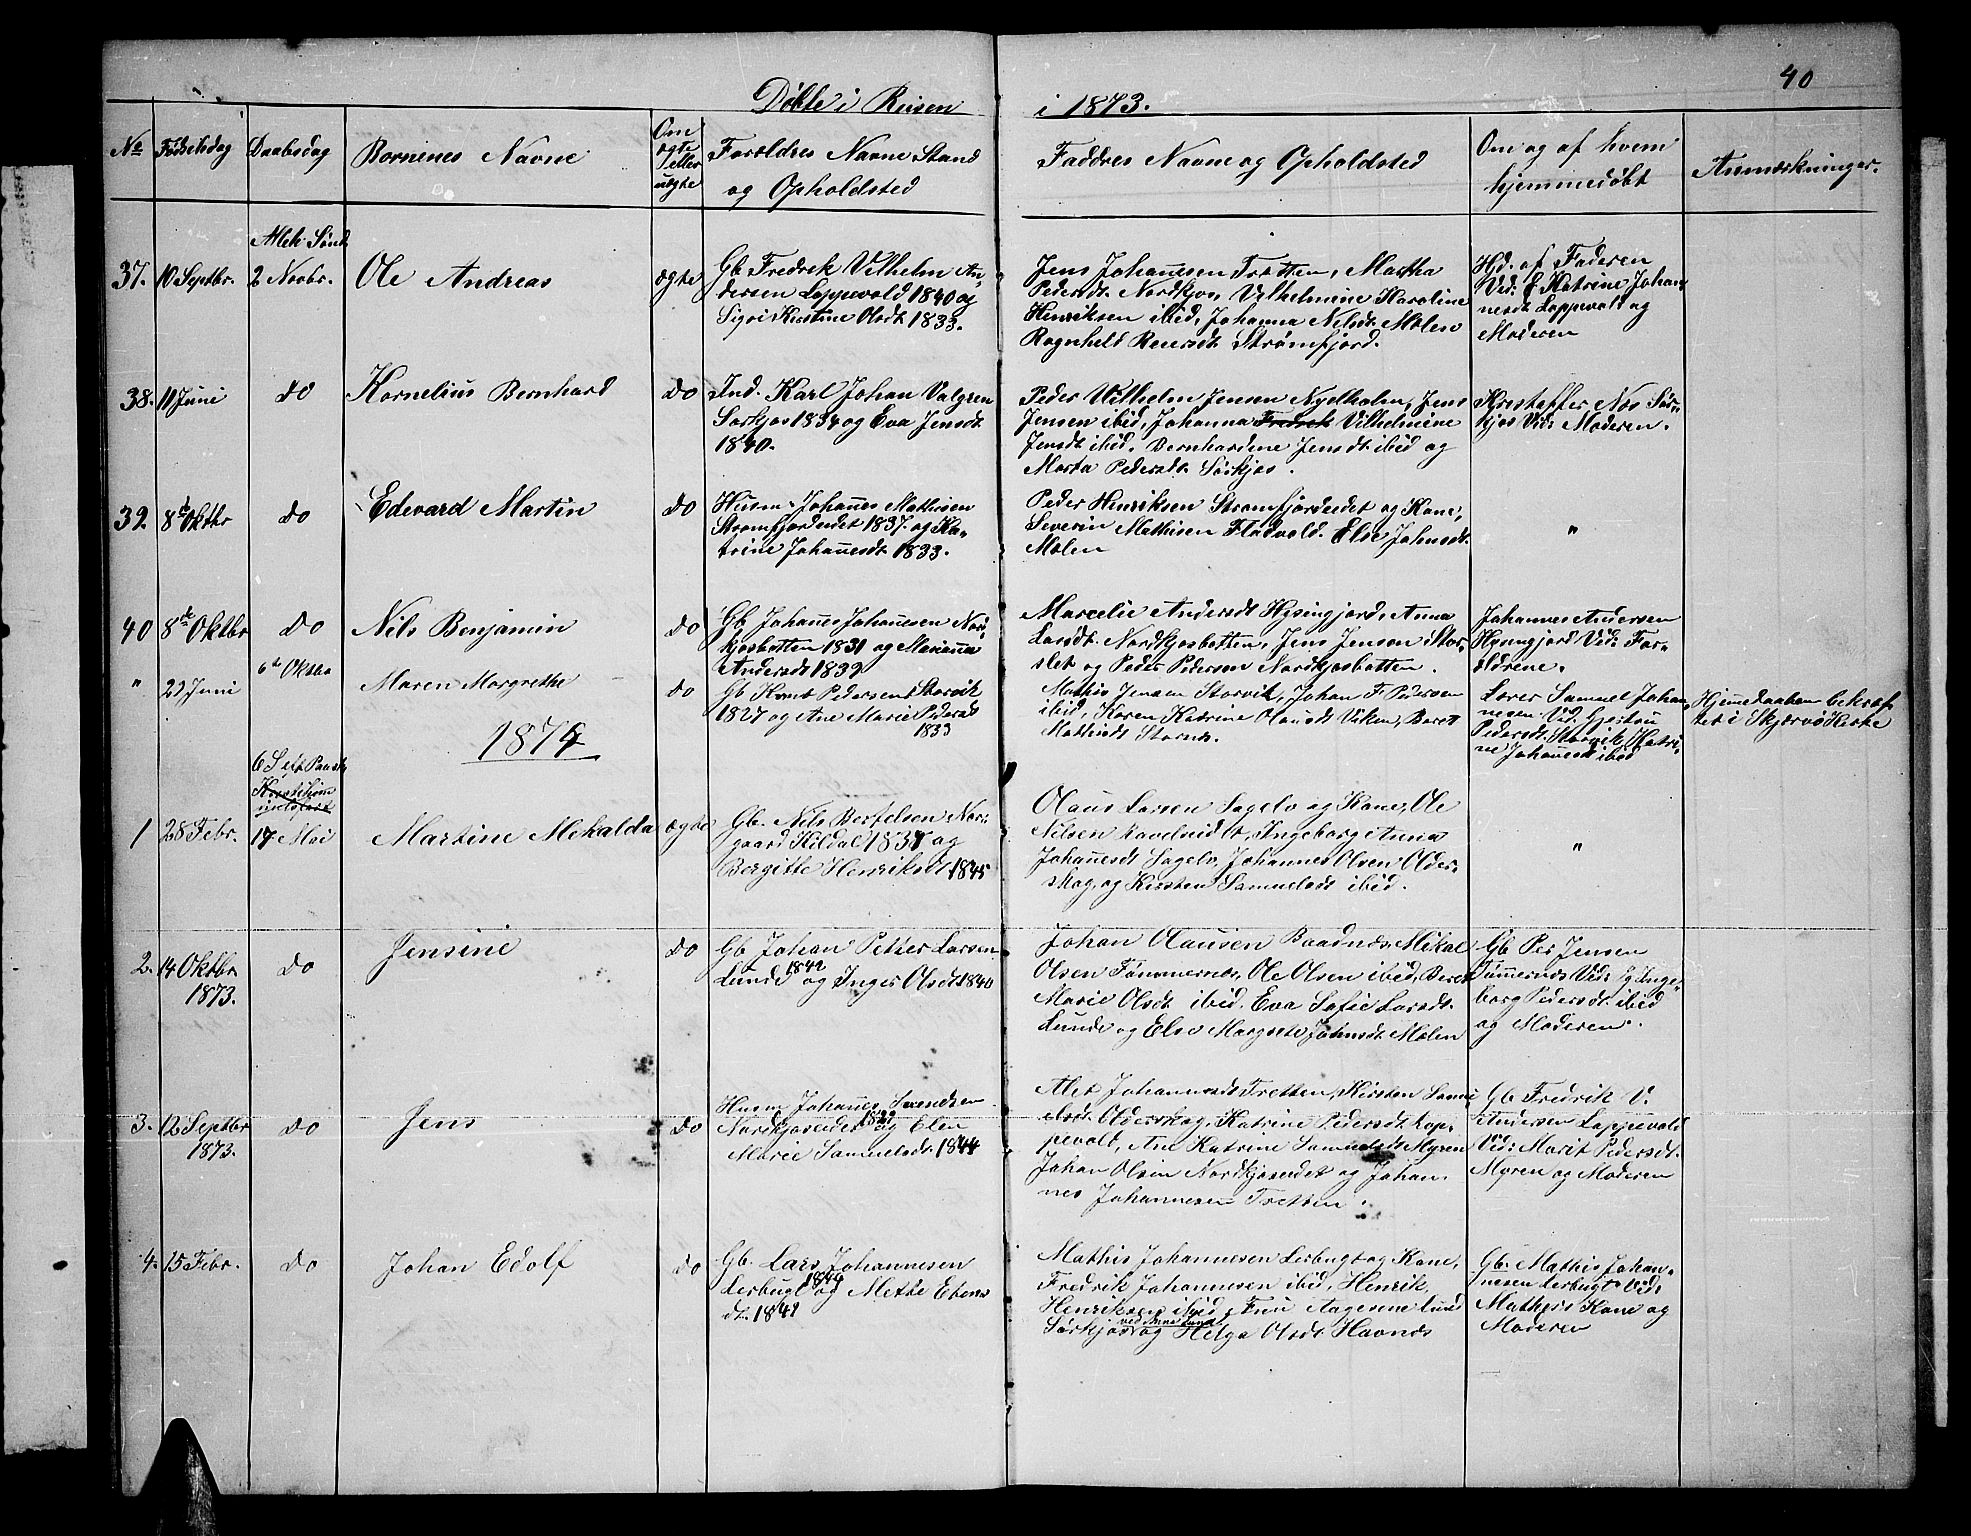 40
Døbte i Reisen i 1873.
No
Fødselsdag
Daabsdag
Børnenes Navne
Om
ægte
eller
uægte
Forældres Navne Stand
og Opholdsted
Faddres Navne og Opholdsted
Om og af hvem
hjemmedøbt
Anmærkninger.
37.
10 Septbr.
Aleh. Sønd
2 Novbr.
Ole Andreas
ægte
Gb. Fredrik Vilhelm An-
dersen Loppevold 1840 og
Sigri Kirstine Olsdt 1833.
Jens Johannesen Tretten, Martha
Pedersdt. Nordkjos, Vilhelmine Karoline
Henriksen ibid, Johanna Nilsdt. Molen
Ragnhild Reiersdt Strømfjord.
Hjd. af Faderen
Vid: Katrine Johan-
nesdt Loppevold og
Moderen
38.
11 Juni
do
Kornelius Bernhard
do
Ind. Karl Johan Valgren
Sørkjos 1834 og Eva Jensdt
1840.
Peder Vilhelm Jensen Nyelholm, Jens
Jensen ibid, Johanna Fredrik Vilhelmine
Jensdt ibid. Bernhardine Jensdt ibid og
Marta Pedersdt. Sørkjos.
Kristoffer Nos Sør-
kjos Vid: Moderen.
39.
8de Oktbr
do
Edevard Martin
do
Husm. Johanes Mathisen
Strømfjordeidet 1837. og Ka-
trine Johanesdt. 1833.
Peder Henriksen Strømfjordeidet og Kone,
Severin Mathisen Fladvold. Else Johnsdt.
Molen
"
40
8de Oktbr
do
Nils Benjamin
do
Gb Johanes Johanesen Nor-
kjosbotten 1831 og Marianna
Andersdt 1832
Marcelie Andersdt Hysingjord, Anna
Larsdt. Nordkjosbotten, Jens Jensen Stor-
slet og Peder Pedersen Nordkjosbotten.
Johannes Andersen
Hysingjord Vid: For-
ældrene.
"
22 Juni
6te Oktbr
Maren Margrethe
do
Gb Pedersen Storvik
1827 og Ane Marie Pedersdt
1833
Mathis Jensen Storvik, Johan F Pedersen
ibid, Karen Katrine Olausdt Viken, Beret
Mathisdt Storvik.
Lærer Samuel Johan-
nesen Vid.
Pedersdt. Storvik, Katri-
ne Johanesdt ibid
Hjemedaaben bekræf
tet i Skjervø Kirke
1874
6 S eft Paaske
1
28 Febr.
17 Mai
Martine Mekalda
ægte
Gb. Nils Bertelsen Nor-
gaard Kildal 1837 og
Bergitte Henriksdt 1845
Olaus Larsen Sagelv og Kone, Ole
Nilsen, Ingeborg Anna
Johanesdt Sagelv, Johannes Olsen Older-
skog, og Kirsten Samuelsdt ibid.
"
2.
14 Oktbr.
1873.
do
Jensine
do
Gb Johan Petter Larsen
Lunde 1842 og Inger Olsdt 1840
Johan Olausen Baadnæs, Mikal
Olsen Tømmernæs, Ole Olsen ibid, Beret
Marie Olsdt ibid. Eva Sofie Larsdt.
Lunde og Else Margrete Johnsdt. Molen
Gb Per Jensen
Tømmernes Vid: Inge-
borg Pedersdt. ibid
og Moderen.
3.
12 Septbr
1873.
do
Jens
do
Husm Johanes Svendsen
Nordkjoseidet og Elen
Marie Samuelsdt. 1844
Alet Johannesdt Tretten, Kirsten Samu
elsdt. Olderskog, Katrine Pedersdt. Lop-
pevold, Ane Katrine Samuelsdt Myren
Johan Olsen Nordkjoseidet og Johan-
nes Johannesen Tretten.
Gb Fredrik V.
Andersen Loppevold
Vid: Marit Pedersdt.
Myren og Moderen
4.
15 Febr.
do
Johan Edolf
do
Gb. Lars Johannesen
Lerbugt og Mette Ebens
dt. 1841
Mathis Johannesen Lerbugt og Kone,
Fredrik Johannesen ibid, Henrik
Henriksen ibid, Fru Aagesine Lund
Sørkjos og Helga Olsdt Havnæs
Gb. Mathis Johan-
nesen Lerbugt Vid:
Mathis's Kone og
Moderen